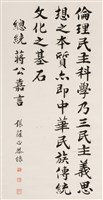 倫理民主科學乃三民主義思
想之本質亦即中華民族傳統
文化之基石
總統 蔣公嘉言